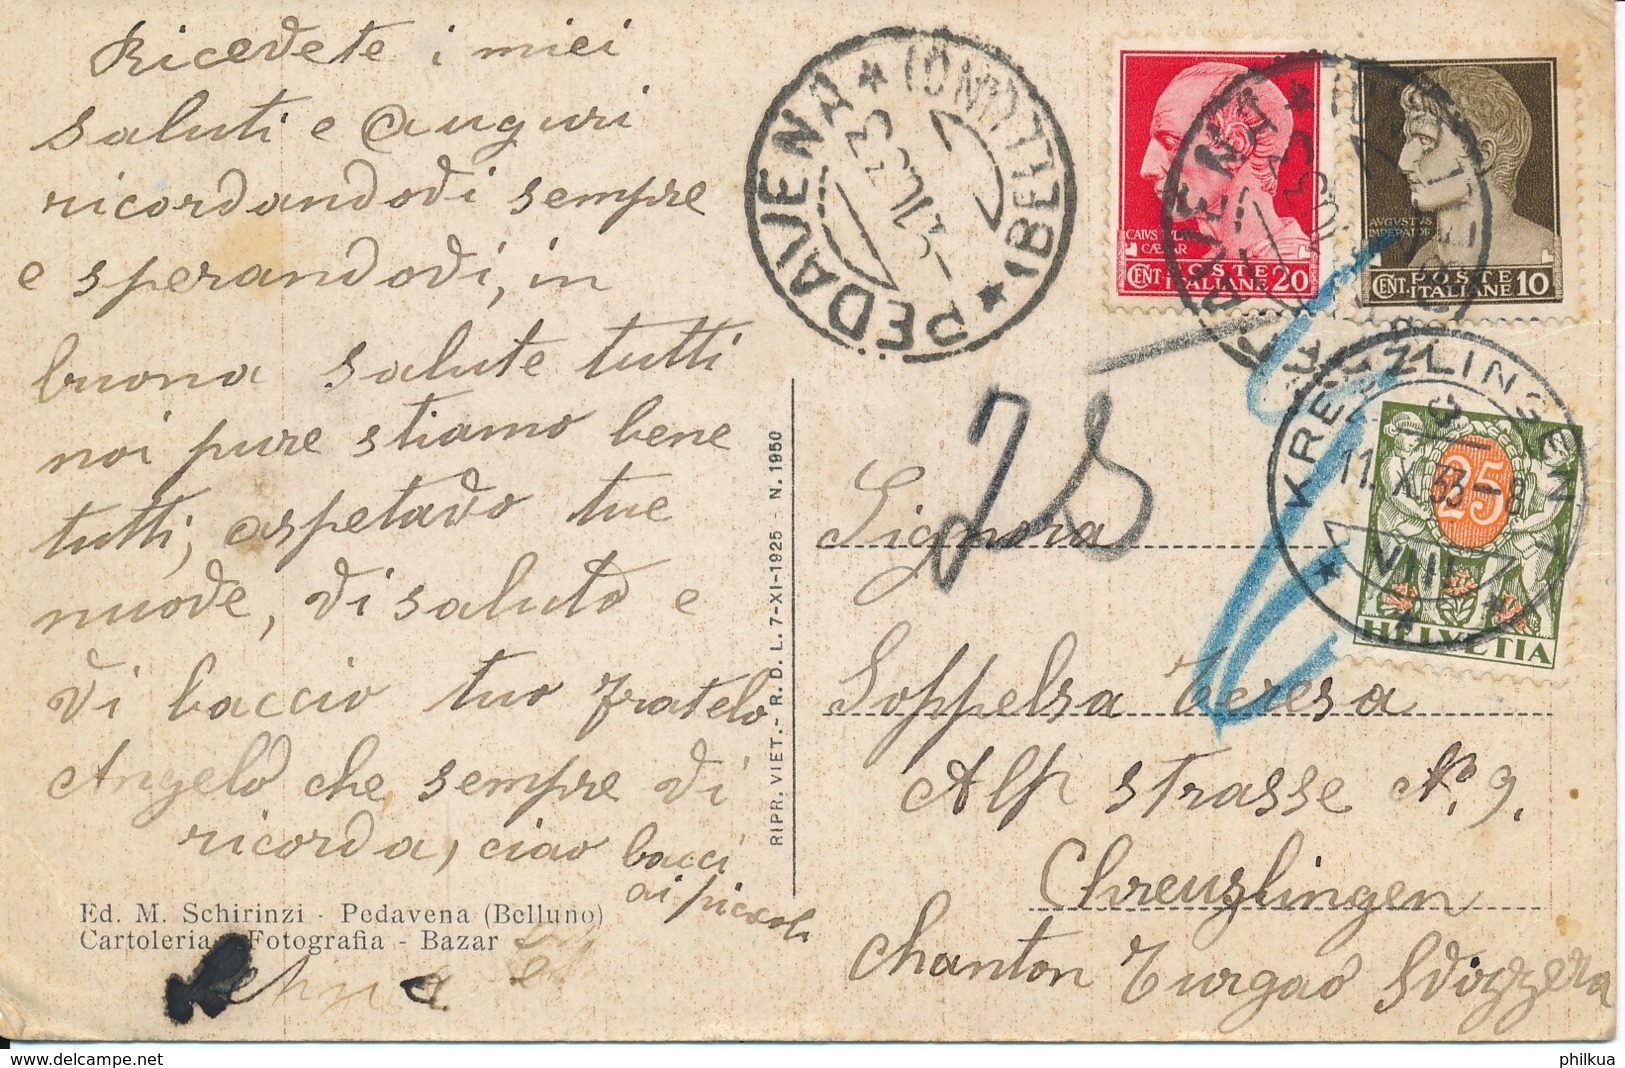 Ricevete i miei
saluti e auguri
ricordandovi sempre
e sperandovi, in
buona salute tutti
noi pure stiamo bene
tutti, aspetavo tue
nuove, vi saluto e
vi baccio tuo fratelo
Angelo che sempre vi
ricorda, ciao bacci
ai piccoli
Ed. M. Schirinzi - Pedavena (Belluno)
Cartoleria - Fotografia - Bazar
RIPR. VIET. - R. D. L. 7-XI-1925 - N. 1950
PEDAVENA * (BELLUNO) *
CAIVS IVL
CÆSAR
CENT. POSTE ITALIANE 20
AVGVSTVS
IMPERATOR
CENT. POSTE ITALIANE 10
KREUZLINGEN 1
11. X. 33 - 8
VIII
25
HELVETIA
25
Signora
Soppelsa Teresa
Alp strasse No. 9.
Chreuzlingen
Chanton Turgao Svizzera
philkua.com
philkua